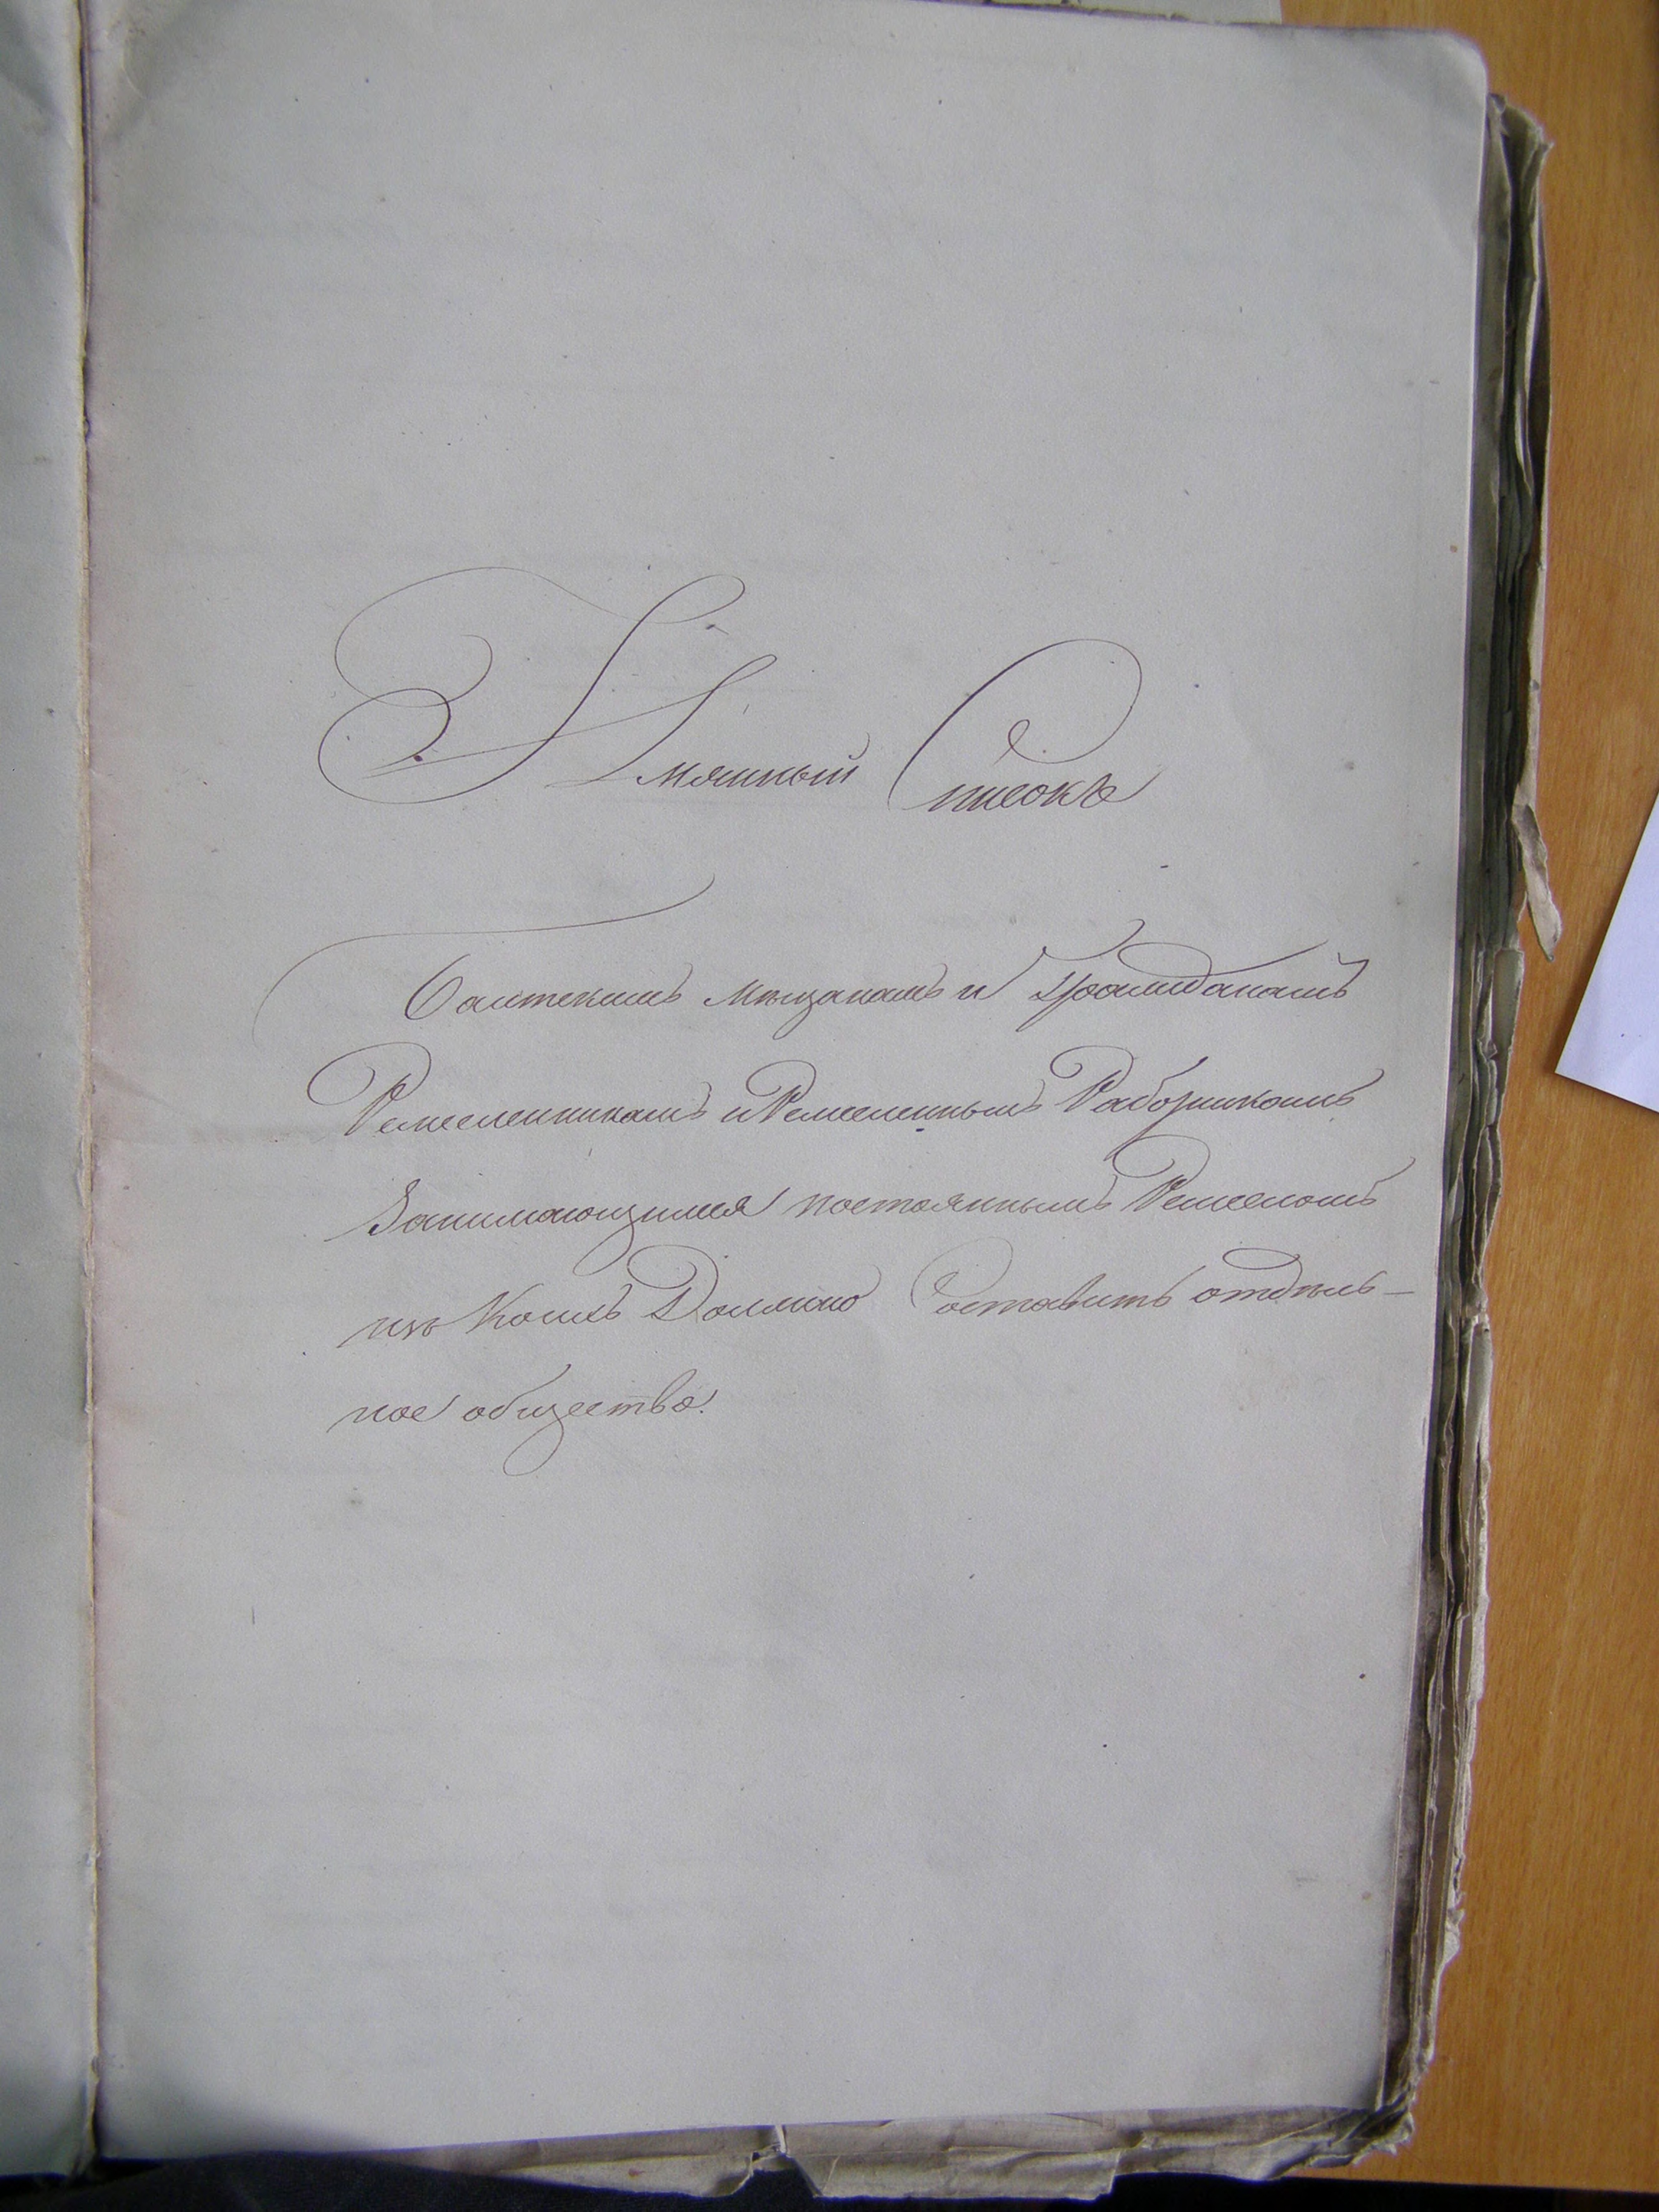 Имянный Списокъ
Балтскимъ мѣщанамъ и Гражданамъ
Ремесленникамъ и Ремесленнымъ Рабочикамъ
Занимающимся постояннымъ Ремесломъ
изъ Коихъ Должно Составить отдѣль-
ное общество.